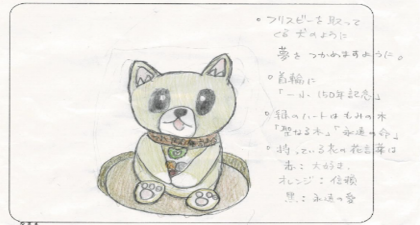 ○フリスビーを取って
くる犬のように
夢をつかめますように。
○首輪に
「一小150年記念」
○緑のハートはもみの木
「聖なる木」「永遠の命」
○持っている花の花言葉は
赤：大好き、
オレンジ：信頼
黒：永遠の愛